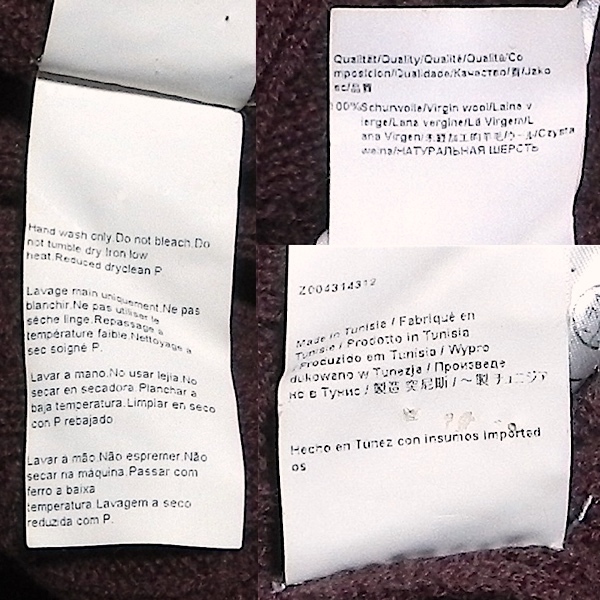 Hand wash only.Do not bleach.Do
not tumble dry.Iron low
heat.Reduced dryclean P.
Lavage main uniquement.Ne pas
blanchir.Ne pas utiliser le
sèche linge.Repassage a
température faible.Nettoyage a
sec soigné P.
Lavar a mano.No usar lejia.No
secar en secadora.Planchar a
baja temperatura.Limpiar en seco
con P rebajado
Lavar à mão.Não espremer.Não
secar na máquina.Passar com
ferro a baixa
temperatura.Lavagem a seco
reduzida com P.
Qualität/Quality/Qualité/Qualità/Co
mposicion/Qualidade/Качество/質/Jako
sc/品質
100%Schurwolle/Virgin wool/Laine v
ierge/Lana vergine/Lã Virgem/L
ana Virgen/未經加工的羊毛/ウール/Czysta
welna/НАТУРАЛЬНАЯ ШЕРСТЬ
Z004314312
Made in Tunisia / Fabriqué en
Tunisie / Prodotto in Tunisia
/ Produzido em Tunisia / Wypro
dukowano w Tunezja / Произведе
но в Тунис / 製造 突尼斯 / ~製 チュニジア
Hecho en Tunez con insumos importad
os